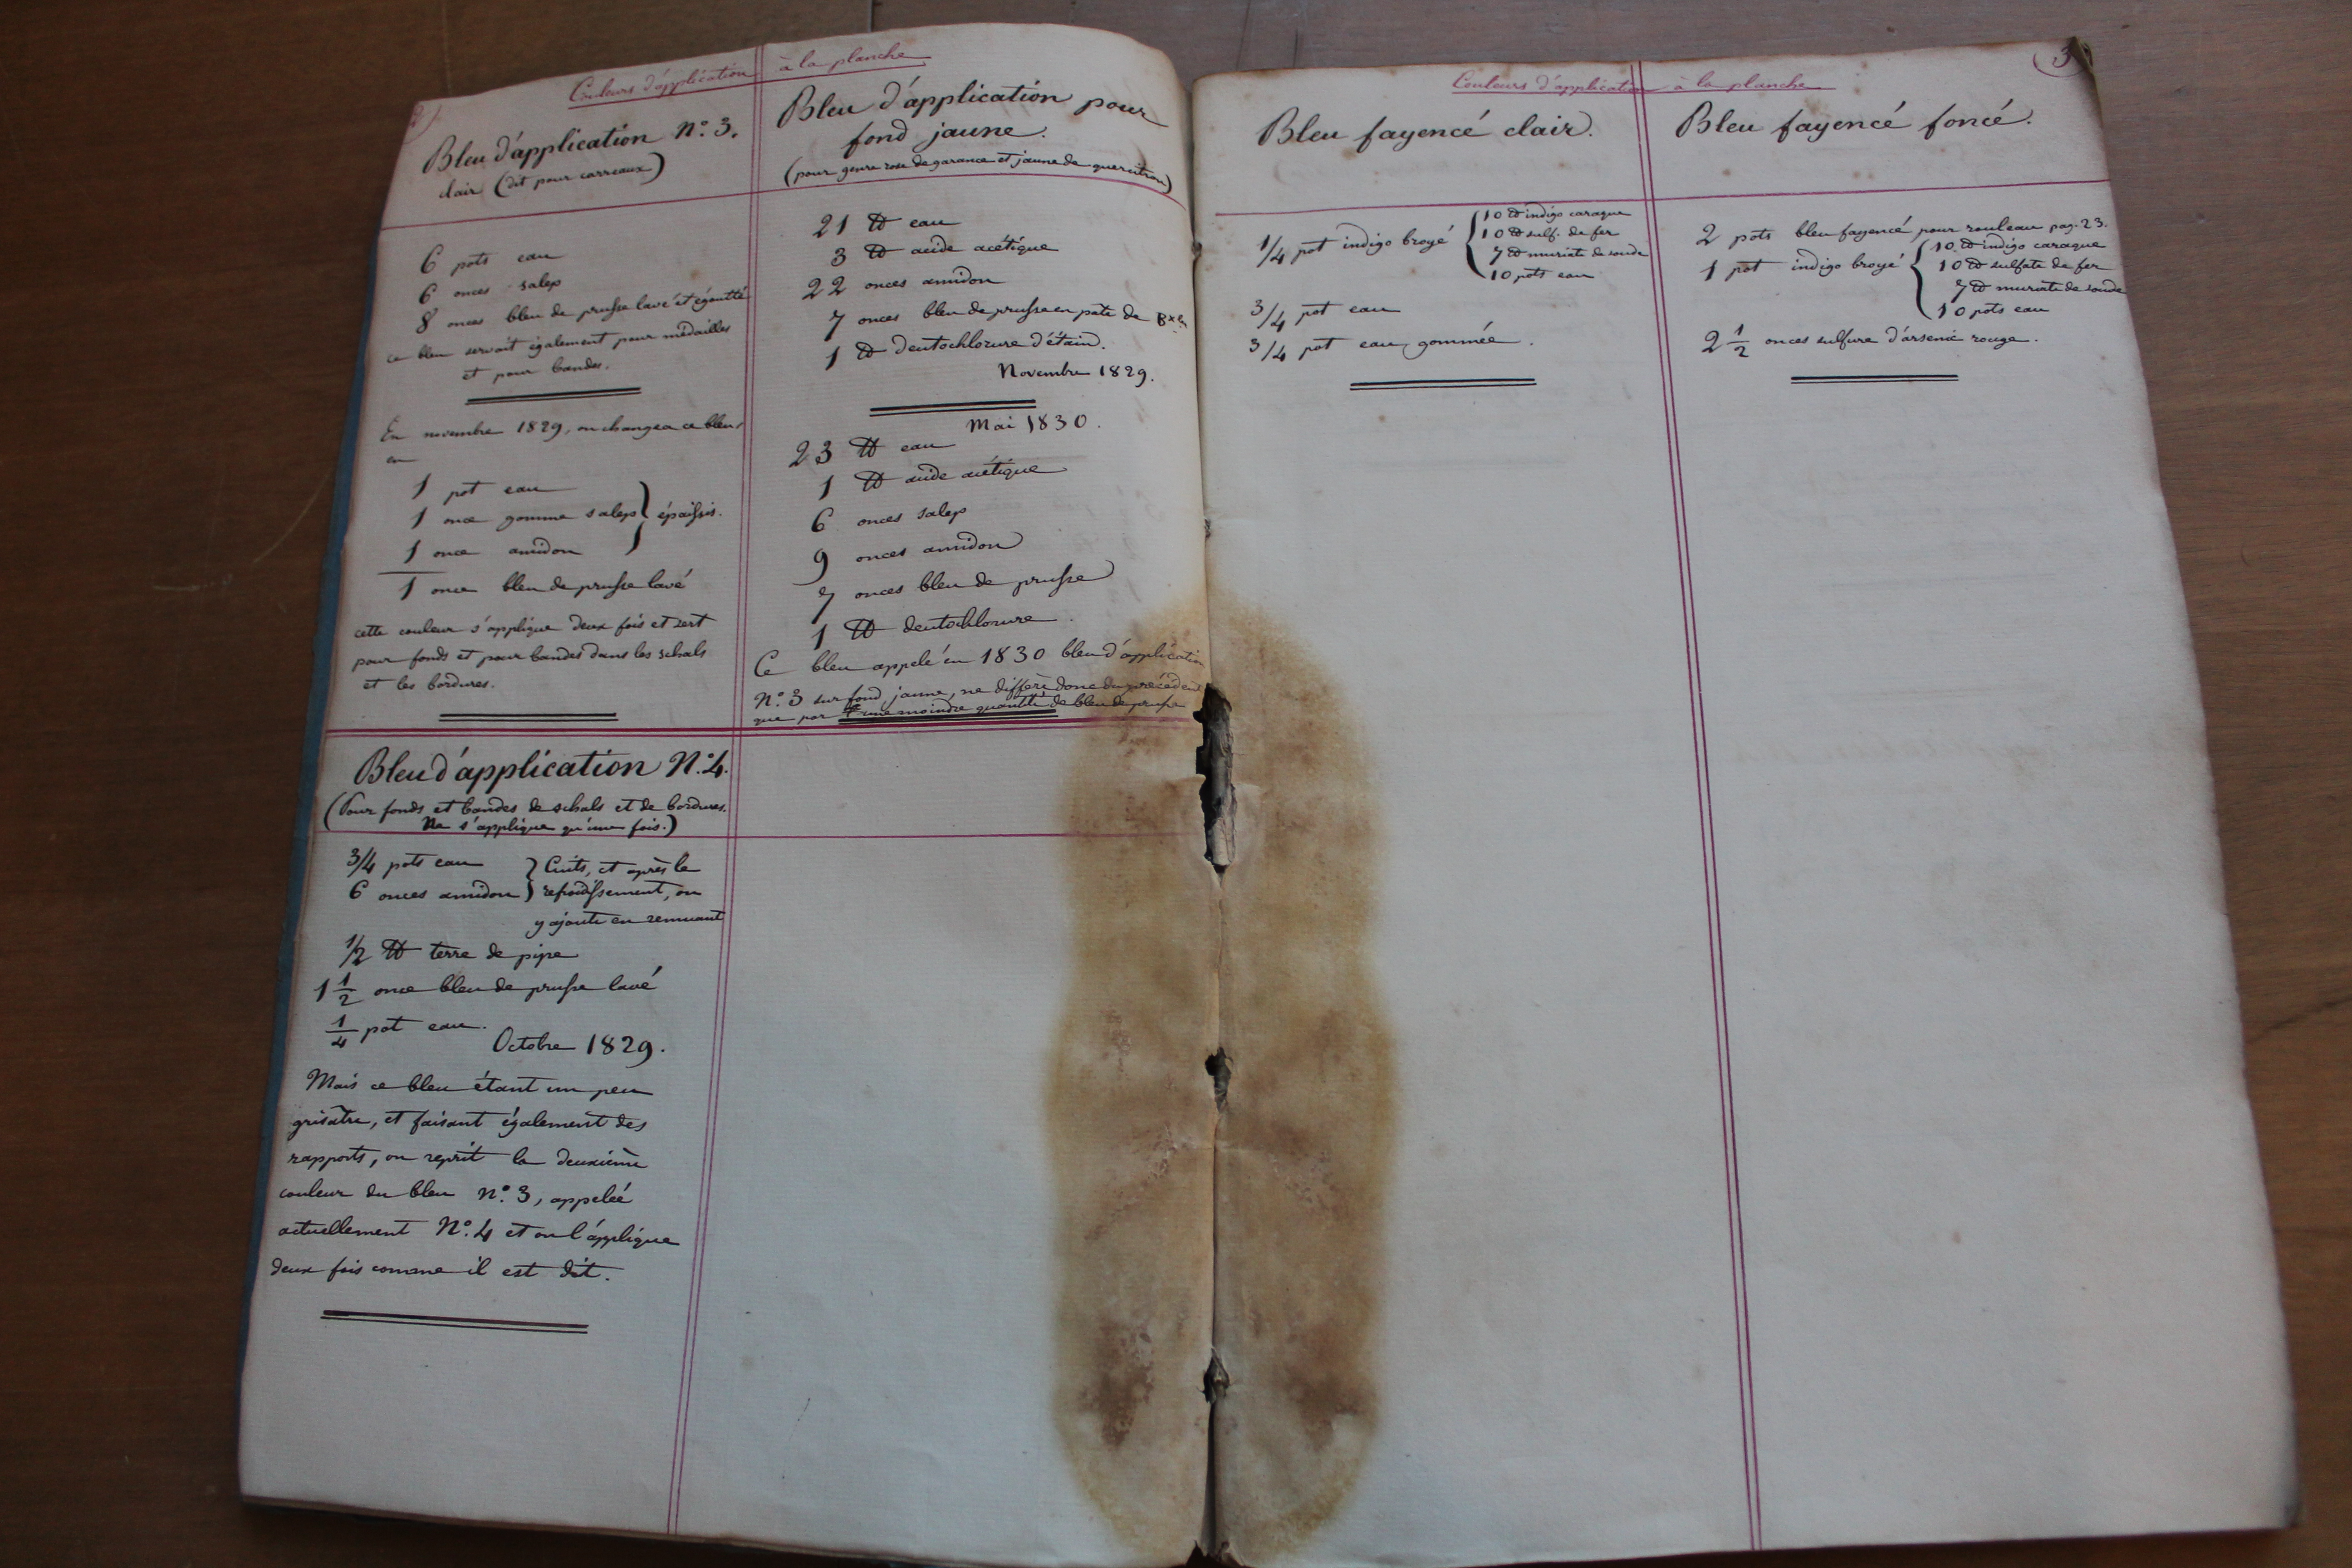 Couleurs d'application à la planche
Bleu d'application N.° 3.
clair (dit pour carreaux)
6 pots eau
6 onces salep
8 onces bleu de prusse lavé et égoutté
ce bleu servait également pour médailles
et pour bandes.
En novembre 1829, on changea ce bleu
en
1 pot eau
1 once gomme salep } épaissis.
1 once amidon
1 once bleu de prusse lavé
cette couleur s'applique deux fois et sert
pour fonds et pour bandes dans les schals
et les bordures.
Bleu d'application pour
fond jaune.
(pour genre rose de garance et jaune de quercitron)
21 ℔ eau
3 ℔ acide acétique
22 onces amidon
7 onces bleu de prusse en pâte de
1 ℔ deutochlorure d'étain.
Novembre 1829.
Mai 1830.
23 ℔ eau
1 ℔ acide acétique
6 onces salep
9 onces amidon
7 onces bleu de prusse
1 ℔ deutochlorure.
Ce bleu appelé en 1830 bleu d'application
N.° 3 sur fond jaune, ne diffère donc du précédent
que par une moindre quantité de bleu de prusse
Bleu d'application N.° 4.
(Pour fonds et bandes de schals et de bordures.
Ne s'applique qu'une fois.)
3/4 pots eau } Cuits, et après le
6 onces amidon } refroidissement, on
y ajoute en remuant
1/2 ℔ terre de pipe
1 1/2 once bleu de prusse lavé
1/4 pot eau.
Octobre 1829.
Mais ce bleu étant un peu
grisâtre, et faisant également des
rapports, on reprit la deuxième
couleur du bleu N.° 3, appelée
actuellement N.° 4 et on l'applique
deux fois comme il est dit.
3
Couleurs d'application à la planche
Bleu fayencé clair.
1/4 pot indigo broyé { 10 ℔ indigo caraque
10 ℔ sulf. de fer
7 ℔ muriate de soude
10 pots eau
3/4 pot eau
3/4 pot eau gommée.
Bleu fayencé foncé.
2 pots bleu fayencé pour rouleau pag. 23.
1 pot indigo broyé { 10 ℔ indigo caraque
10 ℔ sulfate de fer
7 ℔ muriate de soude
10 pots eau
2 1/2 onces sulfure d'arsenic rouge.